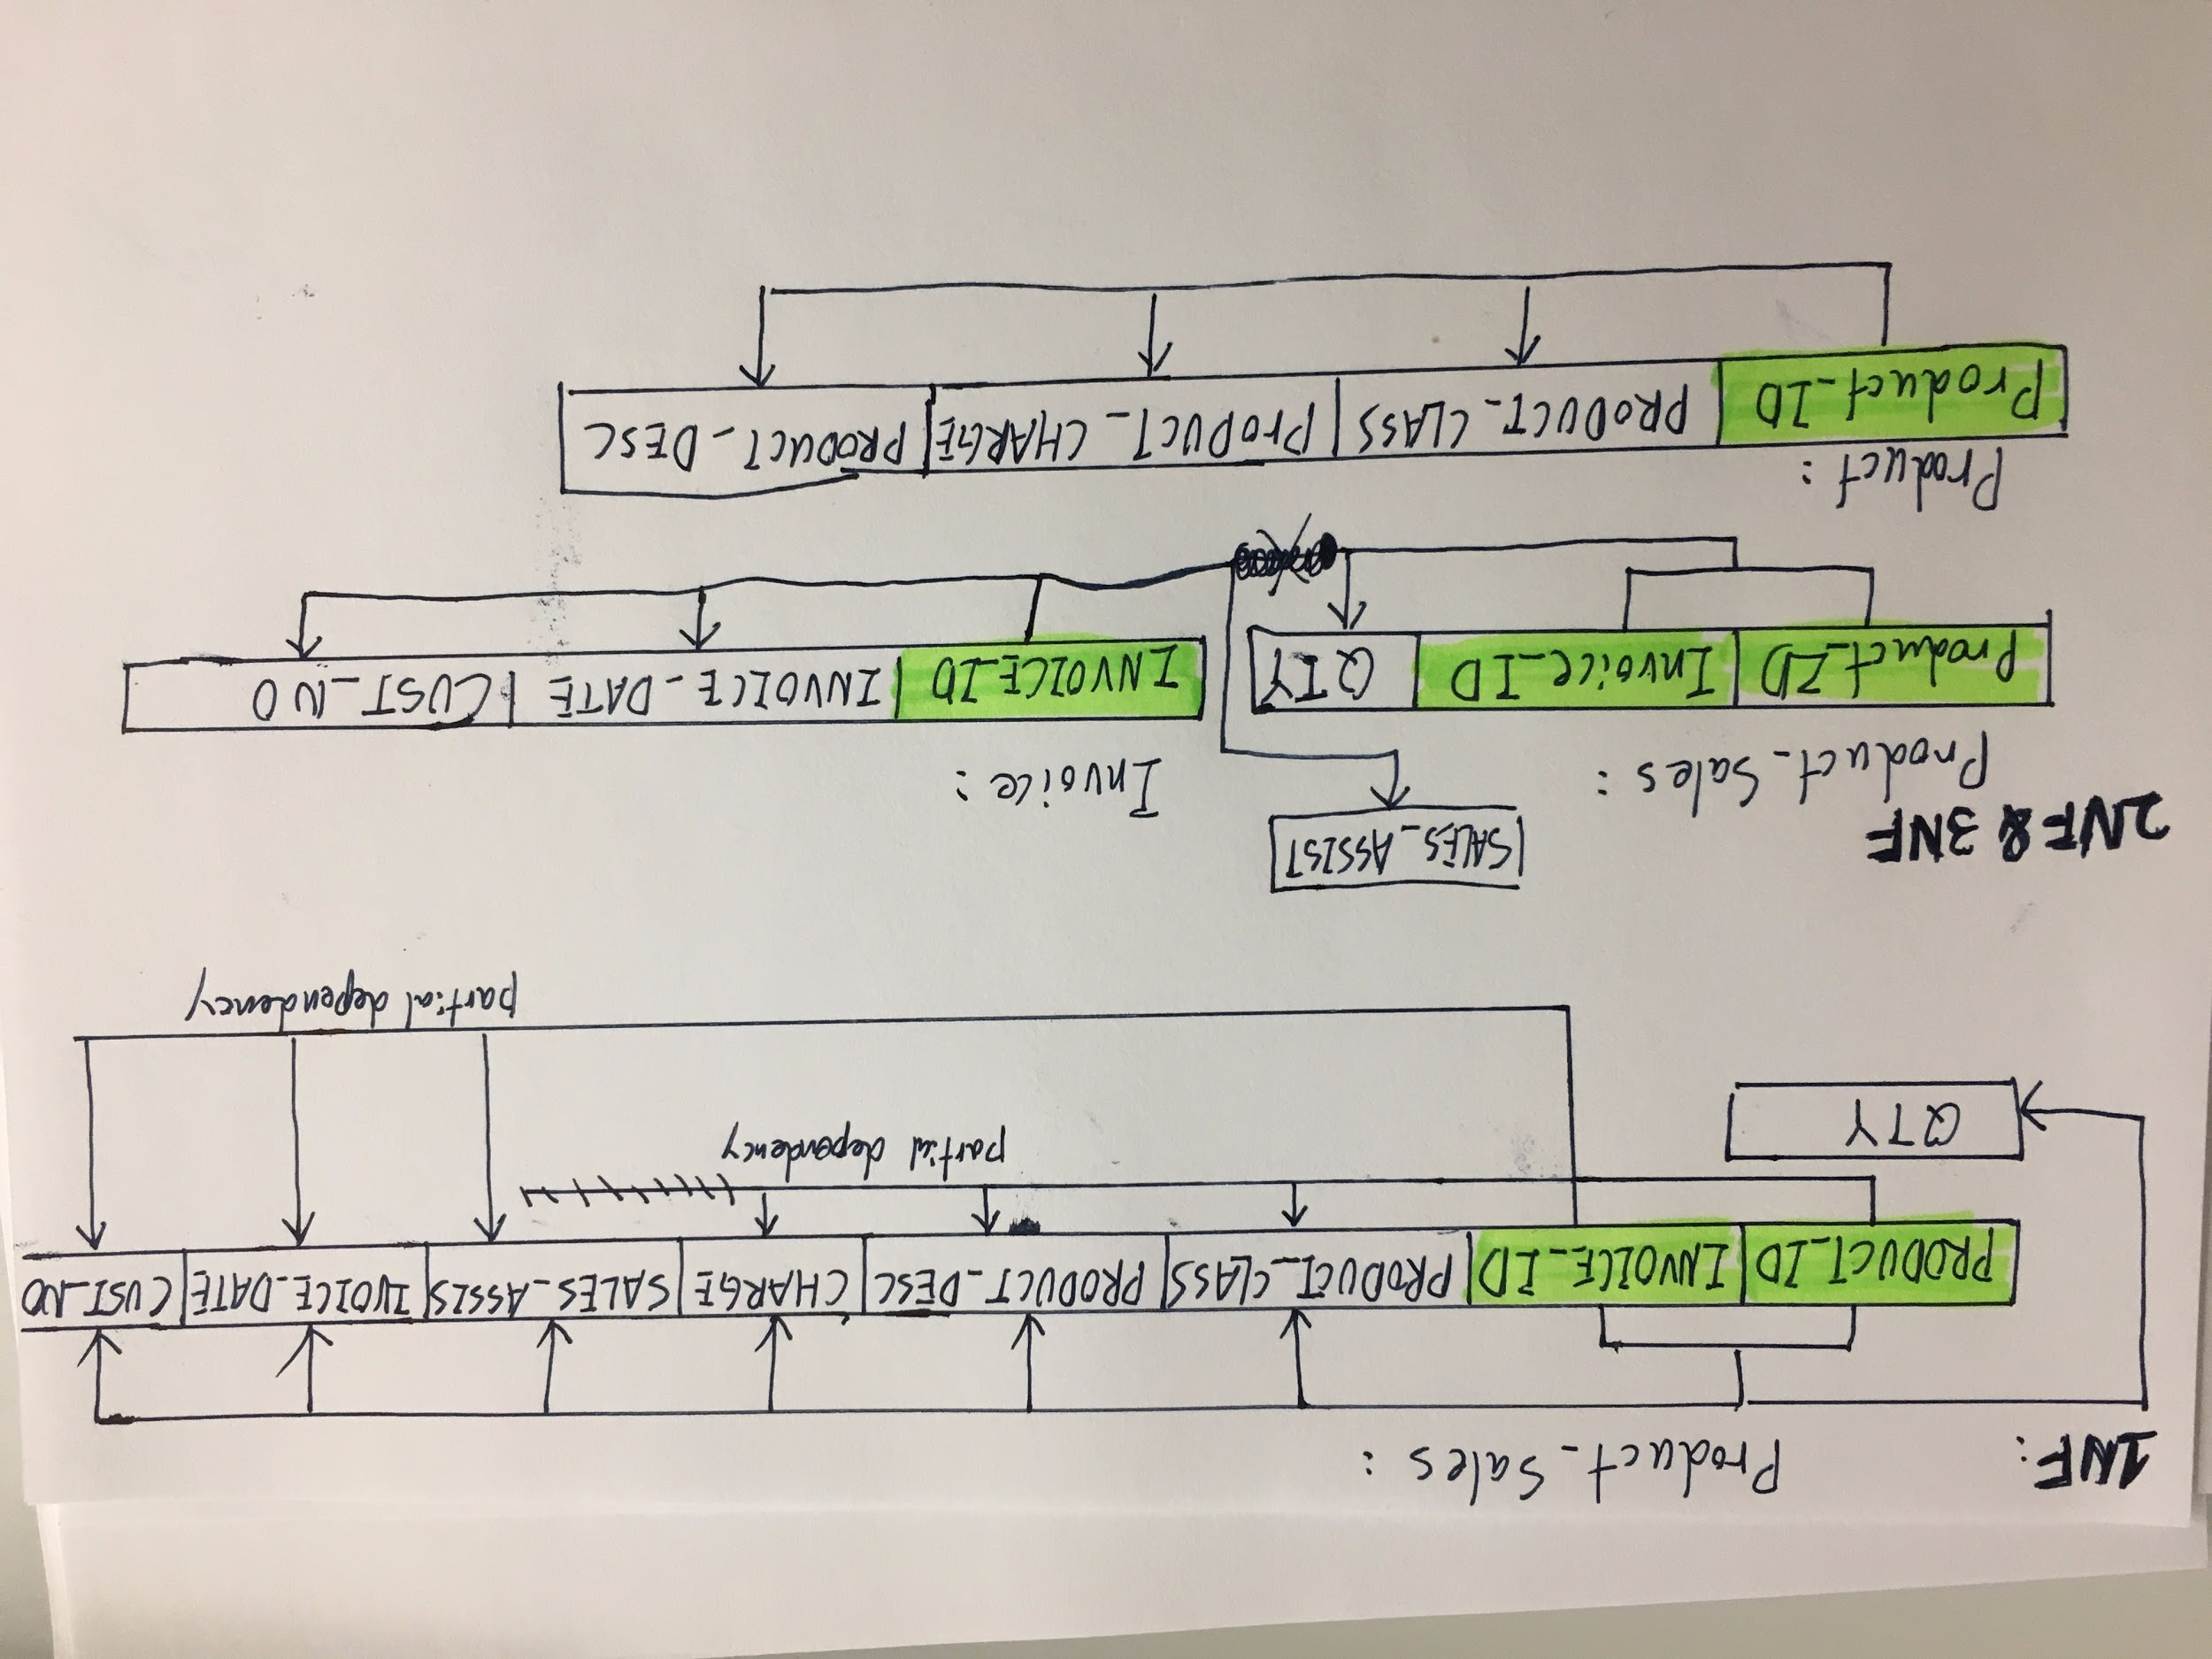 1NF: Product_Sales :
PRODUCT_ID INVOICE_ID PRODUCT_CLASS PRODUCT_DESC CHARGE SALES_ASSIS INVOICE_DATE CUST_NO
QTY
partial dependency
partial dependency
2NF & 3NF
SALES_ASSIST
Product_Sales :
Invoice :
Product_ID Invoice_ID QTY
INVOICE_ID INVOICE_DATE CUST_NO
Product :
Product_ID PRODUCT_CLASS PRODUCT_CHARGE PRODUCT_DESC